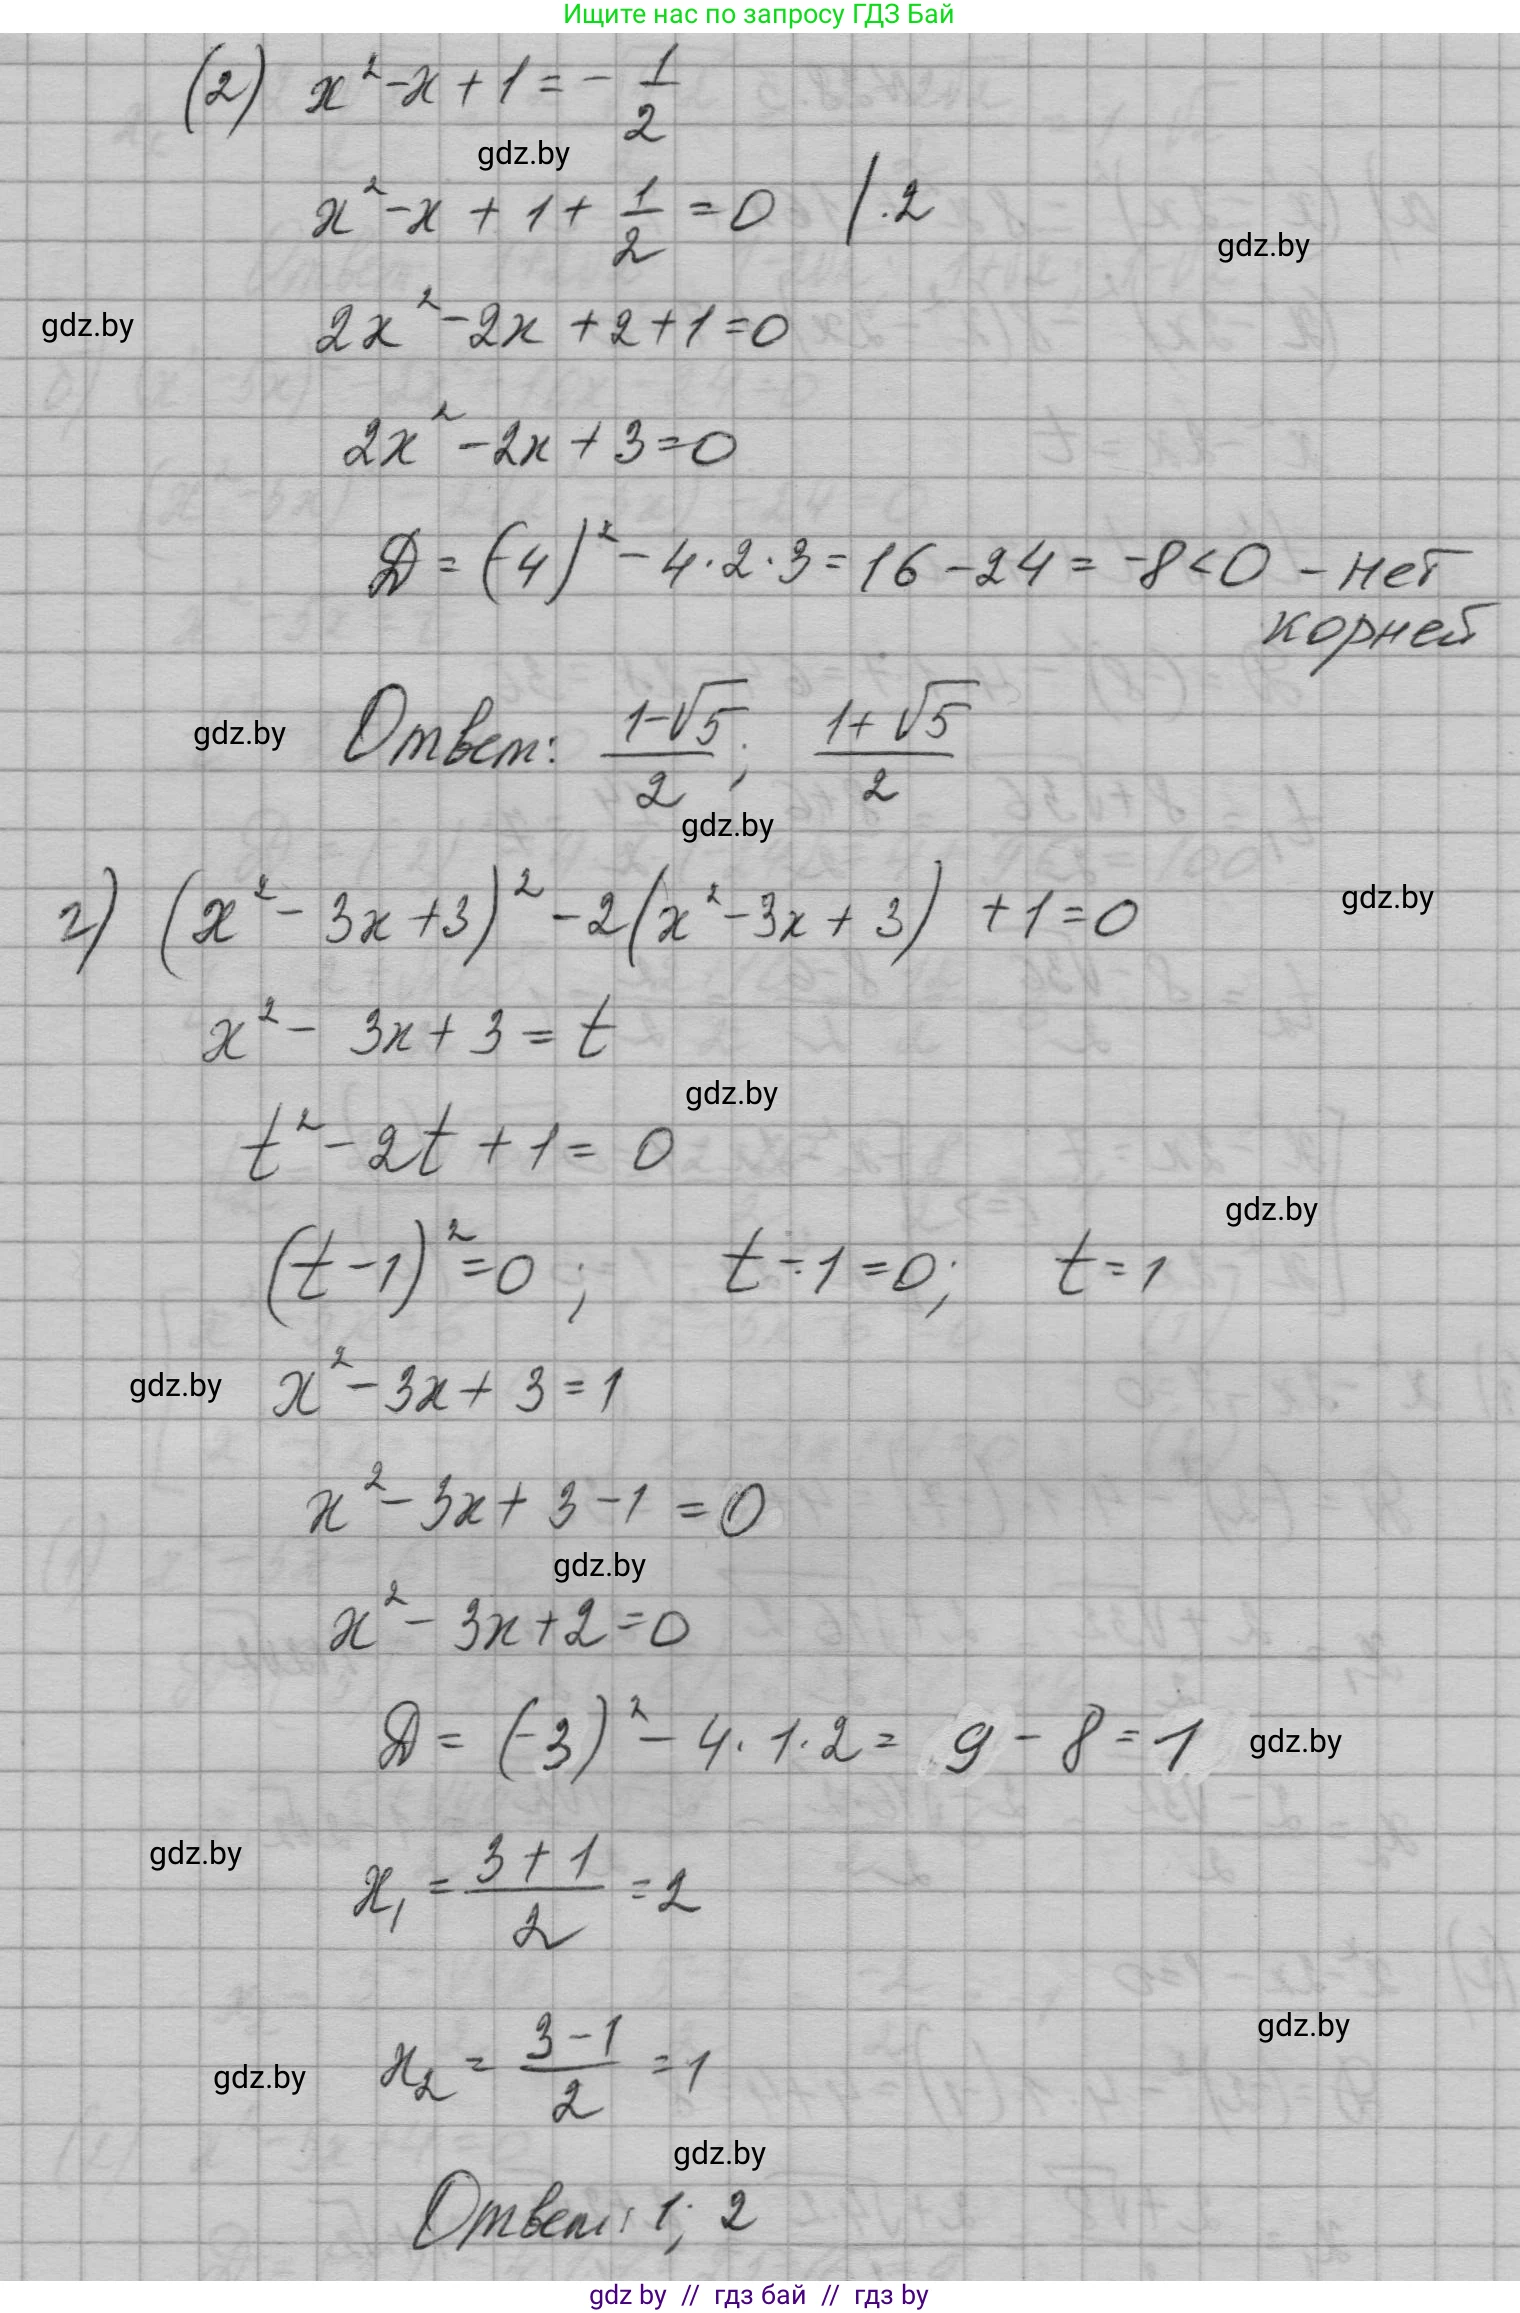 Ищите нас по запросу ГДЗ Бай
(2) x² - x + 1 = - 1/2
gdz.by
x² - x + 1 + 1/2 = 0 /·2
gdz.by
gdz.by
2x² - 2x + 2 + 1 = 0
2x² - 2x + 3 = 0
Д = (-4)² - 4·2·3 = 16 - 24 = -8 < 0 - нет
корней
gdz.by
Ответ: (1-√5)/2; (1+√5)/2
gdz.by
г) (x² - 3x + 3)² - 2(x² - 3x + 3) + 1 = 0
gdz.by
x² - 3x + 3 = t
gdz.by
t² - 2t + 1 = 0
gdz.by
(t - 1)² = 0; t - 1 = 0; t = 1
gdz.by
x² - 3x + 3 = 1
x² - 3x + 3 - 1 = 0
gdz.by
x² - 3x + 2 = 0
Д = (-3)² - 4·1·2 = 9 - 8 = 1
gdz.by
gdz.by
x₁ = (3+1)/2 = 2
gdz.by
x₂ = (3-1)/2 = 1
gdz.by
gdz.by
Ответ: 1; 2
gdz by // гдз бай // гдз by